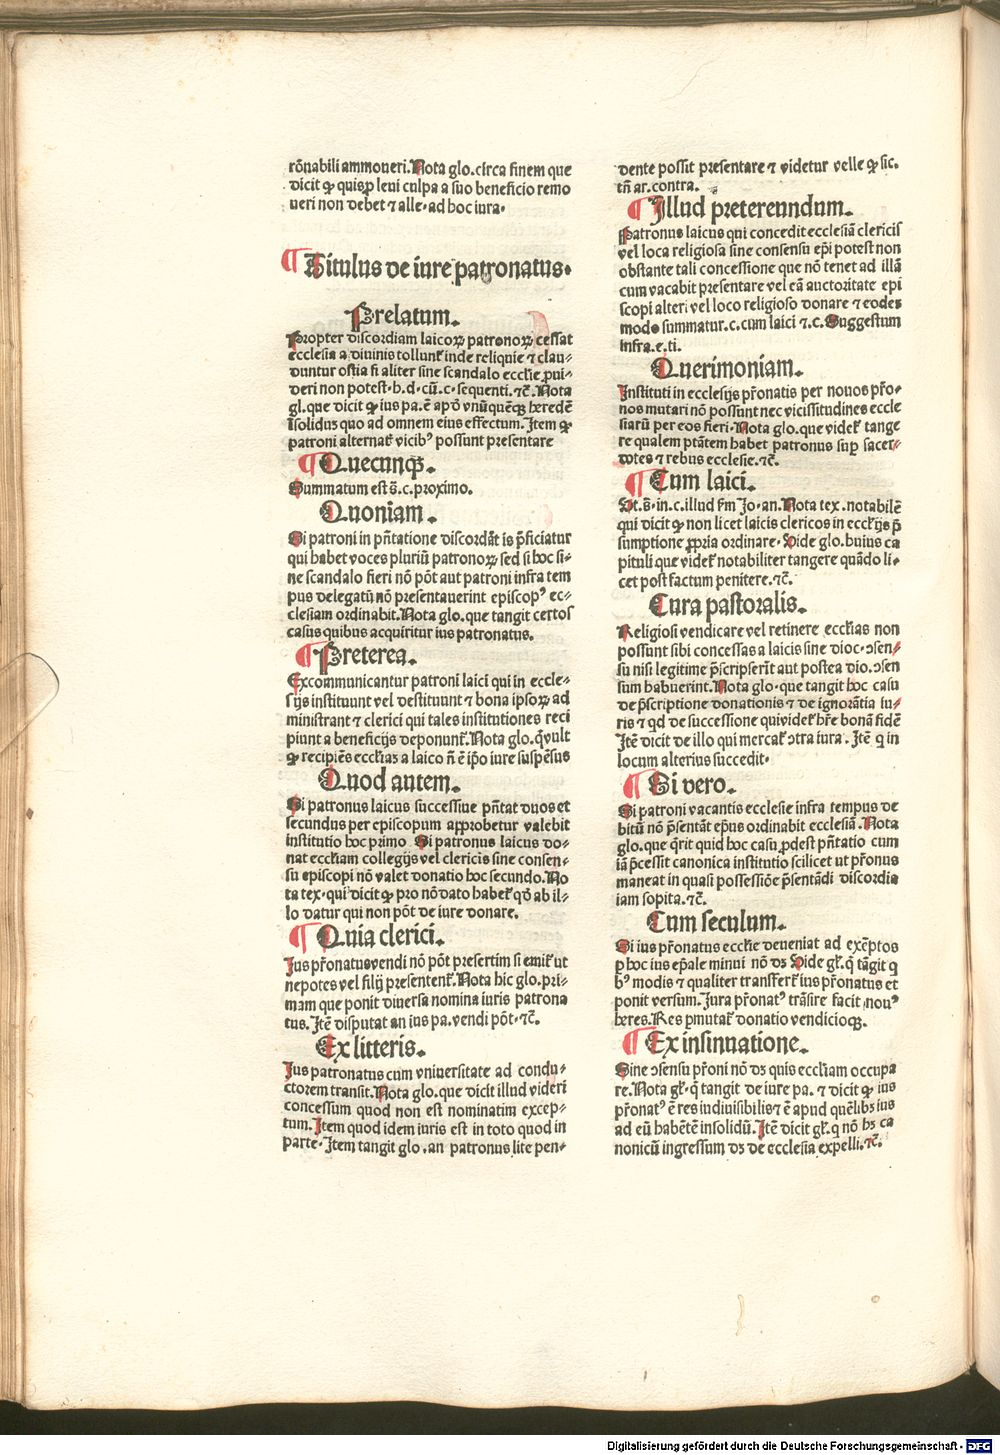 rōnabili ammoueri. Nota glo. circa finem que
dicit ꝙ quisꝑ leui culpa a suo beneficio remo
ueri non debet ⁊ alle. ad hoc iura.
¶ Titulus de iure patronatus.
Prelatum.
Propter discordiam laicoꝝ patronoꝝ cessat
ecclesia a diuinis tollunt̄ inde reliquie ⁊ clau-
duntur ostia si aliter sine scandalo ecclie ꝓui-
deri non potest. h. d. cū. c. sequenti. ⁊c̄. Nota
gl. que dicit ꝙ ius pa. ē apd̄ vnūquēqꝫ heredē
īsolidus quo ad omnem eius effectum. Item ꝙ
patroni alternat̄ vicibꝰ possunt presentare
¶ Quecunqꝫ.
Summatum est s̄. c. proximo.
Quoniam.
Si patroni in pn̄tatione discordāt is p̄ficiatur
qui habet voces pluriū patronoꝝ sed si hoc si-
ne scandalo fieri nō pōt aut patroni infra tem
pus delegatū nō presentauerint episcopꝰ ec-
clesiam ordinabit. Nota glo. que tangit certos
casus quibus acquiritur ius patronatus.
¶ Preterea.
Excommunicantur patroni laici qui in eccle-
sijs instituunt vel destituunt ⁊ bona ipsoꝝ ad
ministrant ⁊ clerici qui tales institutiones reci
piunt a beneficijs deponunt̄. Nota glo. q̄ vult
ꝙ recipiēs eccłias a laico n̄ ē ip̄o iure suspēsus
Quod autem.
Si patronus laicus successiue pn̄tat duos et
secundus per episcopum approbetur valebit
institutio hoc primo. Si patronus laicus do-
nat eccłiam collegijs vel clericis sine consen-
su episcopi nō valet donatio hoc secundo. No
ta tex. qui dicit ꝙ pro nō dato habet̄ qđ ab il-
lo datur qui non pōt de iure donare.
¶ Quia clerici.
Jus pr̄onatus vendi nō pōt presertim si emit̄ ut
nepotes vel filij presentent̄. Nota hic glo. pri-
mam que ponit diuersa nomina iuris patrona
tus. Itē disputat an ius pa. vendi pōt. ⁊c̄.
Ex litteris.
Jus patronatus cum vniuersitate ad condu-
ctorem transit. Nota glo. que dicit illud videri
concessum quod non est nominatim excep-
tum. Item quod idem iuris est in toto quod in
parte. Item tangit glo. an patronus lite pen-
dente possit presentare ⁊ videtur velle ꝙ sic.
tn̄ ar. contra.
¶ Illud preterenndum.
Patronus laicus qui concedit ecclesiā clericis
vel loca religiosa sine consensu ep̄i potest non
obstante tali concessione que nō tenet ad illā
cum vacabit presentare vel eā auctoritate epi
scopi alteri vel loco religioso donare ⁊ eodeꝫ
modo summatur. c. cum laici ⁊. c. Suggestum
infra. e. ti.
Querimoniam.
Instituti in ecclesijs pr̄onatis per nouos pr̄o-
nos mutari nō possunt nec vicissitudines eccle
siarū per eos fieri. Nota glo. que videt̄ tange
re qualem ptātem habet patronus suꝑ sacer-
dotes ⁊ rebus ecclesie. ⁊c̄.
¶ Cum laici.
Vt. s̄. in. c. illud fm Jo. an. Nota tex. notabilē
qui dicit ꝙ non licet laicis clericos in eccłijs p̄
sumptione ꝓpria ordinare. Vide glo. huius ca
pituli que videt̄ notabiliter tangere quādo li-
cet post factum penitere. ⁊c̄.
Cura pastoralis.
Religiosi vendicare vel retinere eccłias non
possunt sibi concessas a laicis sine dioc. ꝯsen-
su nisi legitime p̄scripserīt aut postea dio. ꝯsen
sum habuerint. Nota glo. que tangit hoc casu
de p̄scriptione donationis ⁊ de ignorātia iu-
ris ⁊ qđ de successione qui videt̄ hr̄e bonā fidē
Itē dicit de illo qui mercat̄ ꝯtra iura. Itē q in
locum alterius succedit.
¶ Si vero.
Si patroni vacantis ecclesie infra tempus de
bitū nō p̄sentāt ep̄us ordinabit ecclesiā. Nota
glo. que q̄rit quid hoc casu ꝓdest pn̄tatio cum
iā p̄cessit canonica institutio scilicet ut pr̄onus
maneat in quasi possessiōe p̄sentādi discordia
iam sopita. ⁊c̄.
Cum seculum.
Si ius pr̄onatus ecclie deueniat ad exēptos
ꝑ hoc ius ep̄ale minui nō dꝫ Vide gł. q̄ tāgit q
bꝰ modis ⁊ qualiter transfert̄ ius pr̄onatus et
ponit versum. Jura pr̄onatꝰ trāsire facit nouꝰ
heres. Res ꝑmutat̄ donatio vendicioqꝫ.
¶ Ex insinuatione.
Sine ꝯsensu pr̄oni nō dꝫ quis eccłiam occupa
re. Nota gł. q̄ tangit de iure pa. ⁊ dicit ꝙ ius
pr̄onatꝰ ē res indiuisibilis ⁊ ē apud quēlibꝫ ius
ad eū habētē insolidū. Itē dicit gł. q nō hꝫ ca
nonicū ingressum dꝫ de ecclesia expelli. ⁊c̄.
Digitalisierung gefördert durch die Deutsche Forschungsgemeinschaft - DFG